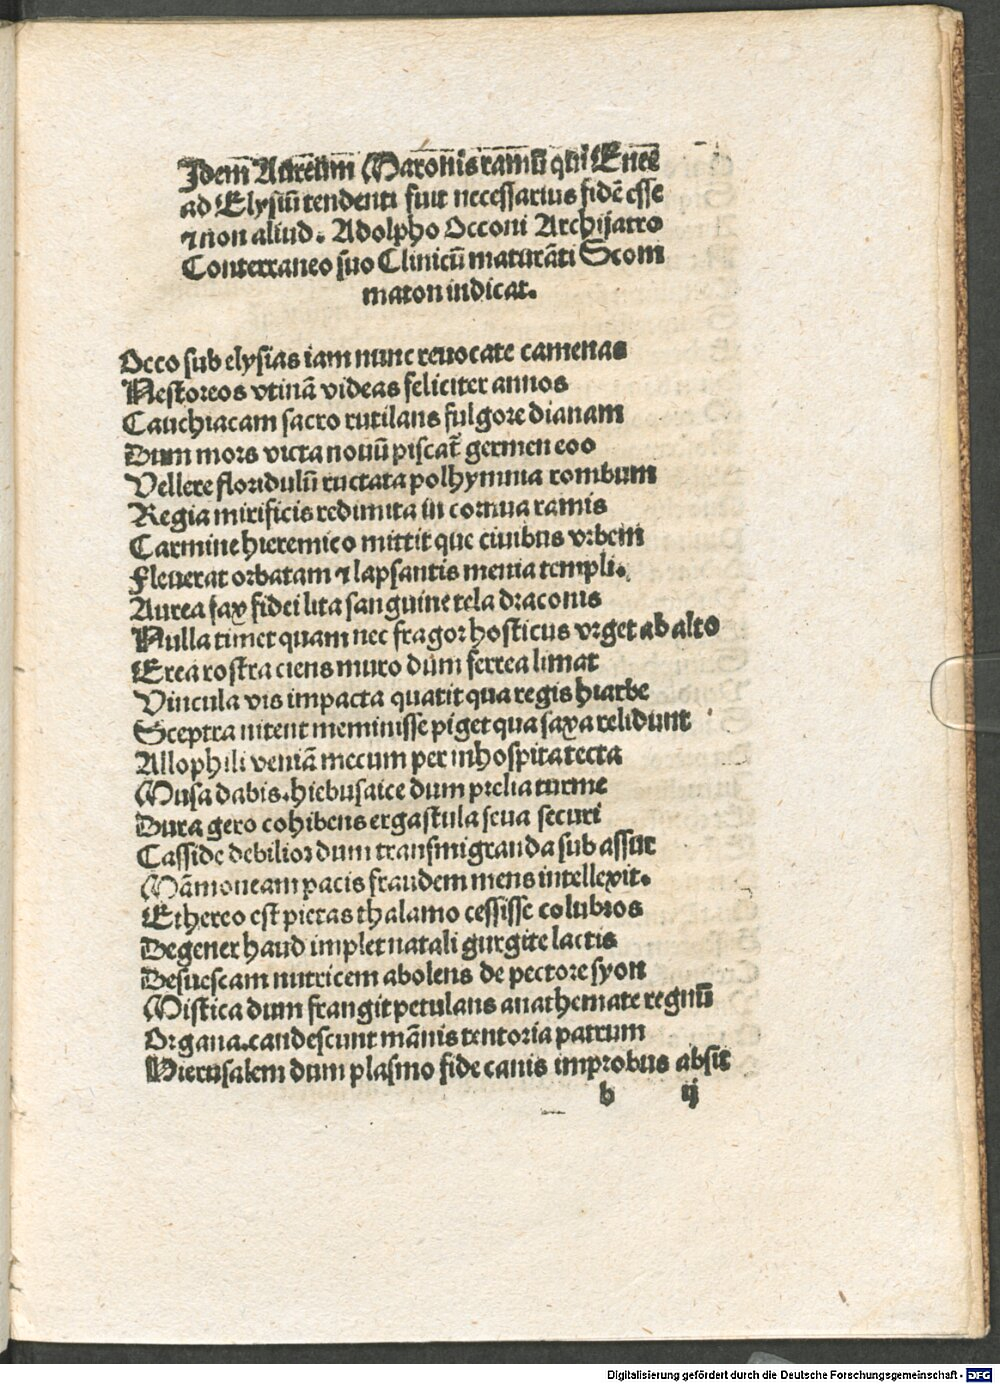 Idem̄ Aureum̄ Maronis ramū qui Eneē
ad Elysiū tendenti fuit necessarius fidē esse
⁊ non aliud. Adolpho Occoni Archijatro
Conterraneo suo Clinicū maturāti Scom
maton indicat.
Occo sub elysias iam nunc reuocate camenas
Nestoreos vtinā videas feliciter annos
Cauchiacam sacro rutilans fulgore dianam
Dum mors victa nouū piscat᷑ germen eoo
Vellere floridulū ructata polhymnia rombum
Regia mirificis redimita in cornua ramis
Carmine hieremico mittit que ciuibus vrbem
Fleuerat orbatam ⁊ lapsantis menia templi.
Aurea fax fidei lita sanguine tela draconis
Nulla timet quam nec fragor hosticus vrget ab alto
Erea rostra ciens muro dum ferrea limat
Vincula vis impacta quatit qua regis hiarbe
Sceptra nitent meminisse piget qua saxa relidunt
Allophili veniā mecum per inhospita tecta
Musa dabis.hiebusaice dum prelia turme
Dura gero cohibens ergastula seua securi
Casside debilior dum transmigranda sub assur
Māmoneam pacis fraudem mens intellexit.
Ethereo est pietas thalamo cessisse colubros
Degener haud implet natali gurgite lactis
Desuescam nutricem abolens de pectore syon
Mistica dum frangit petulans anathemate regnū
Organa.candescunt mānis tentoria patrum
Hierusalem dum plasmo fide canis improbus absit
b ij
Digitalisierung gefördert durch die Deutsche Forschungsgemeinschaft - DFG